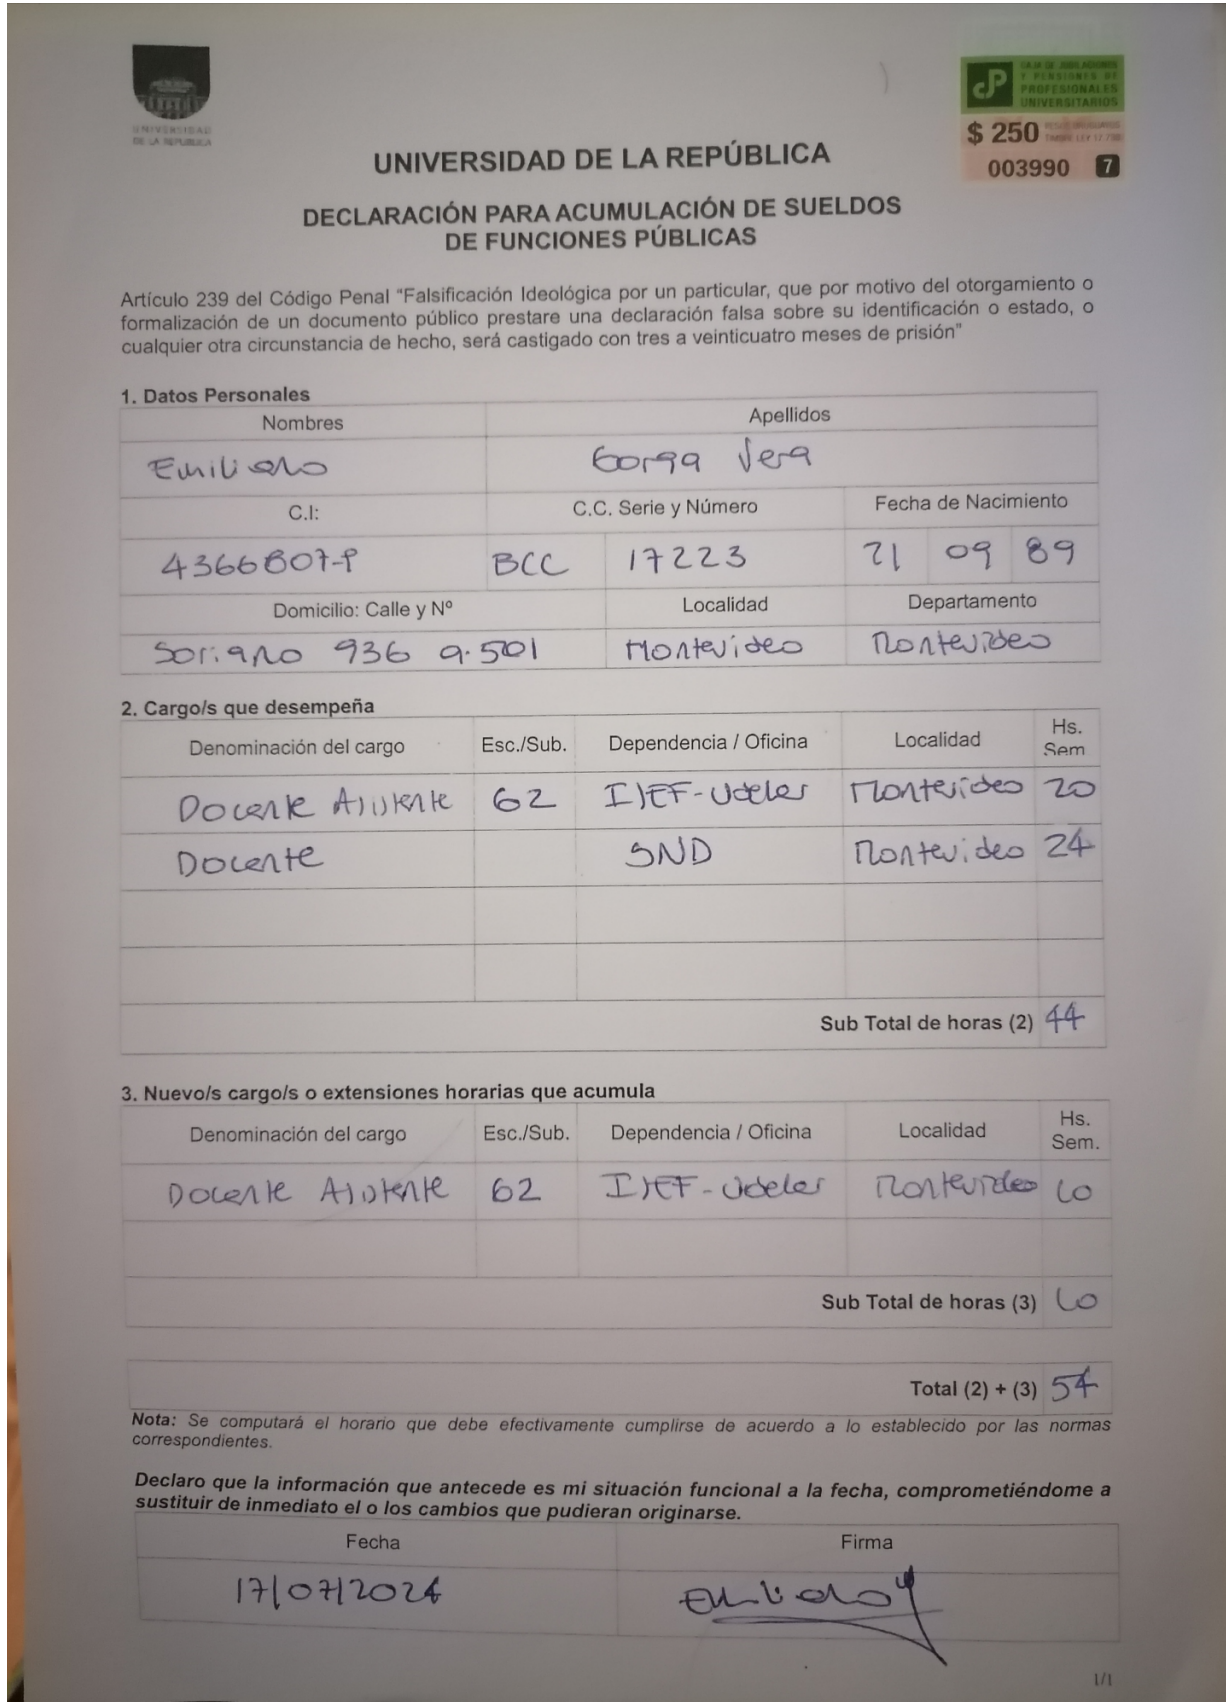 UNIVERSIDAD
DE LA REPÚBLICA
CAJA DE JUBILACIONES
Y PENSIONES DE
PROFESIONALES
UNIVERSITARIOS
$ 250 PESOS URUGUAYOS
TIMBRE LEY 17.738
003990 7
UNIVERSIDAD DE LA REPÚBLICA
DECLARACIÓN PARA ACUMULACIÓN DE SUELDOS
DE FUNCIONES PÚBLICAS
Artículo 239 del Código Penal “Falsificación Ideológica por un particular, que por motivo del otorgamiento o
formalización de un documento público prestare una declaración falsa sobre su identificación o estado, o
cualquier otra circunstancia de hecho, será castigado con tres a veinticuatro meses de prisión”
1. Datos Personales
Nombres Apellidos
Emiliano Gorga Vera
C.I: C.C. Serie y Número Fecha de Nacimiento
BCC 17223 21 09 89
Domicilio: Calle y Nº Localidad Departamento
Soriano 936 a.501 Montevideo Montevideo
2. Cargo/s que desempeña
Denominación del cargo Esc./Sub. Dependencia / Oficina Localidad Hs. Sem
Docente Asistente 62 ISEF-Udelar Montevideo 20
Docente SND Montevideo 24
Sub Total de horas (2) 44
3. Nuevo/s cargo/s o extensiones horarias que acumula
Denominación del cargo Esc./Sub. Dependencia / Oficina Localidad Hs. Sem.
Docente Asistente 62 ISEF-Udelar Montevideo 10
Sub Total de horas (3) 10
Total (2) + (3) 54
Nota: Se computará el horario que debe efectivamente cumplirse de acuerdo a lo establecido por las normas
correspondientes.
Declaro que la información que antecede es mi situación funcional a la fecha, comprometiéndome a
sustituir de inmediato el o los cambios que pudieran originarse.
Fecha Firma
17/07/2024
1/1